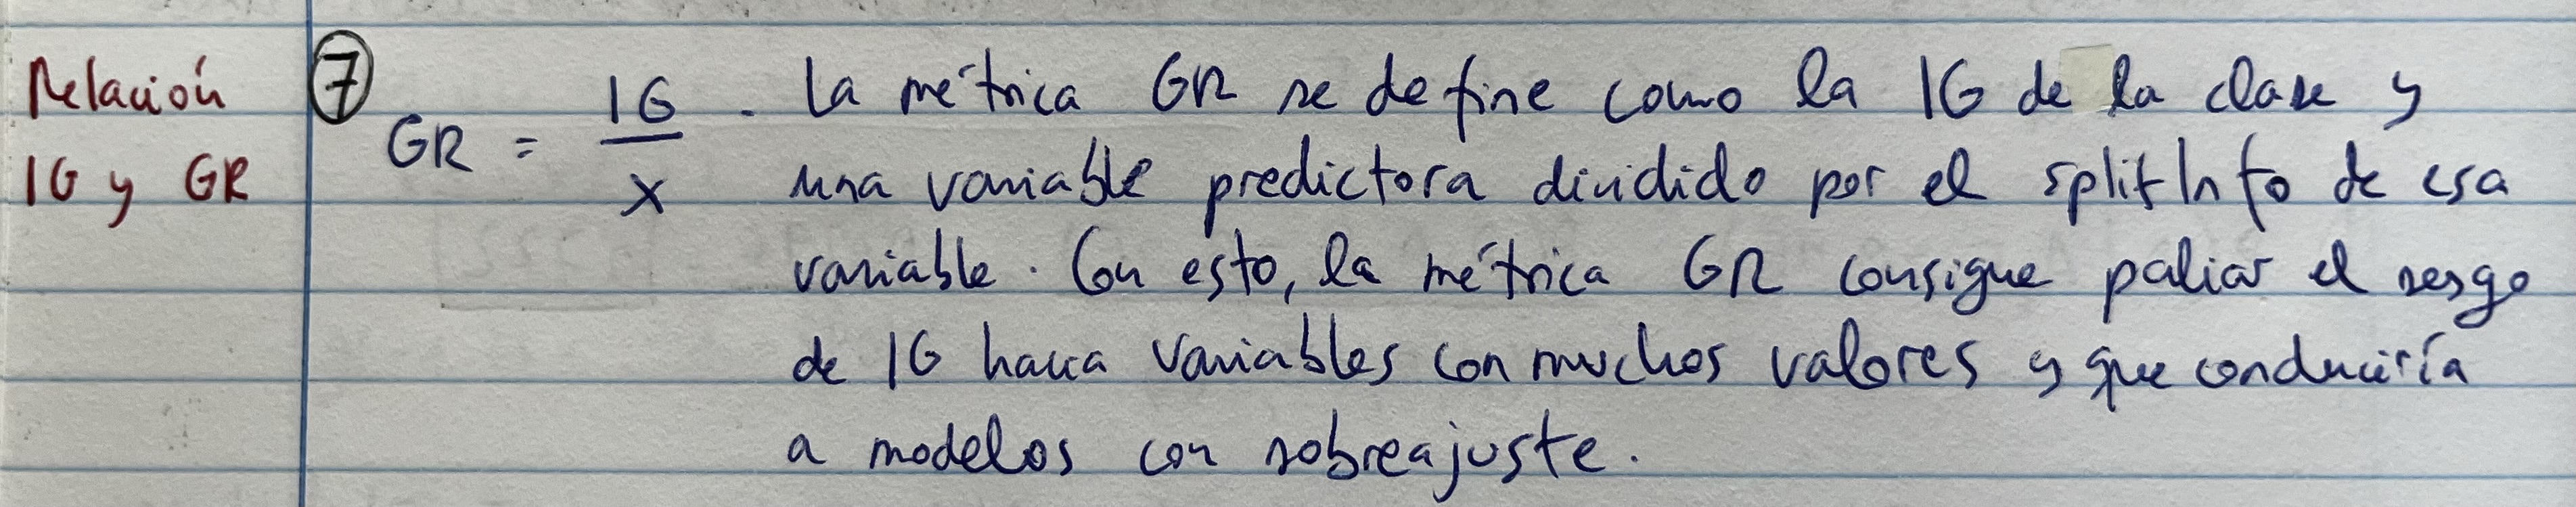 Relación
IG y GR
7
GR = IG / X . La métrica GR se define como la IG de la clase y
una variable predictora dividido por el splitInfo de esa
variable. Con esto, la métrica GR consigue paliar el sesgo
de IG hacia variables con muchos valores y que conduciría
a modelos con sobreajuste.